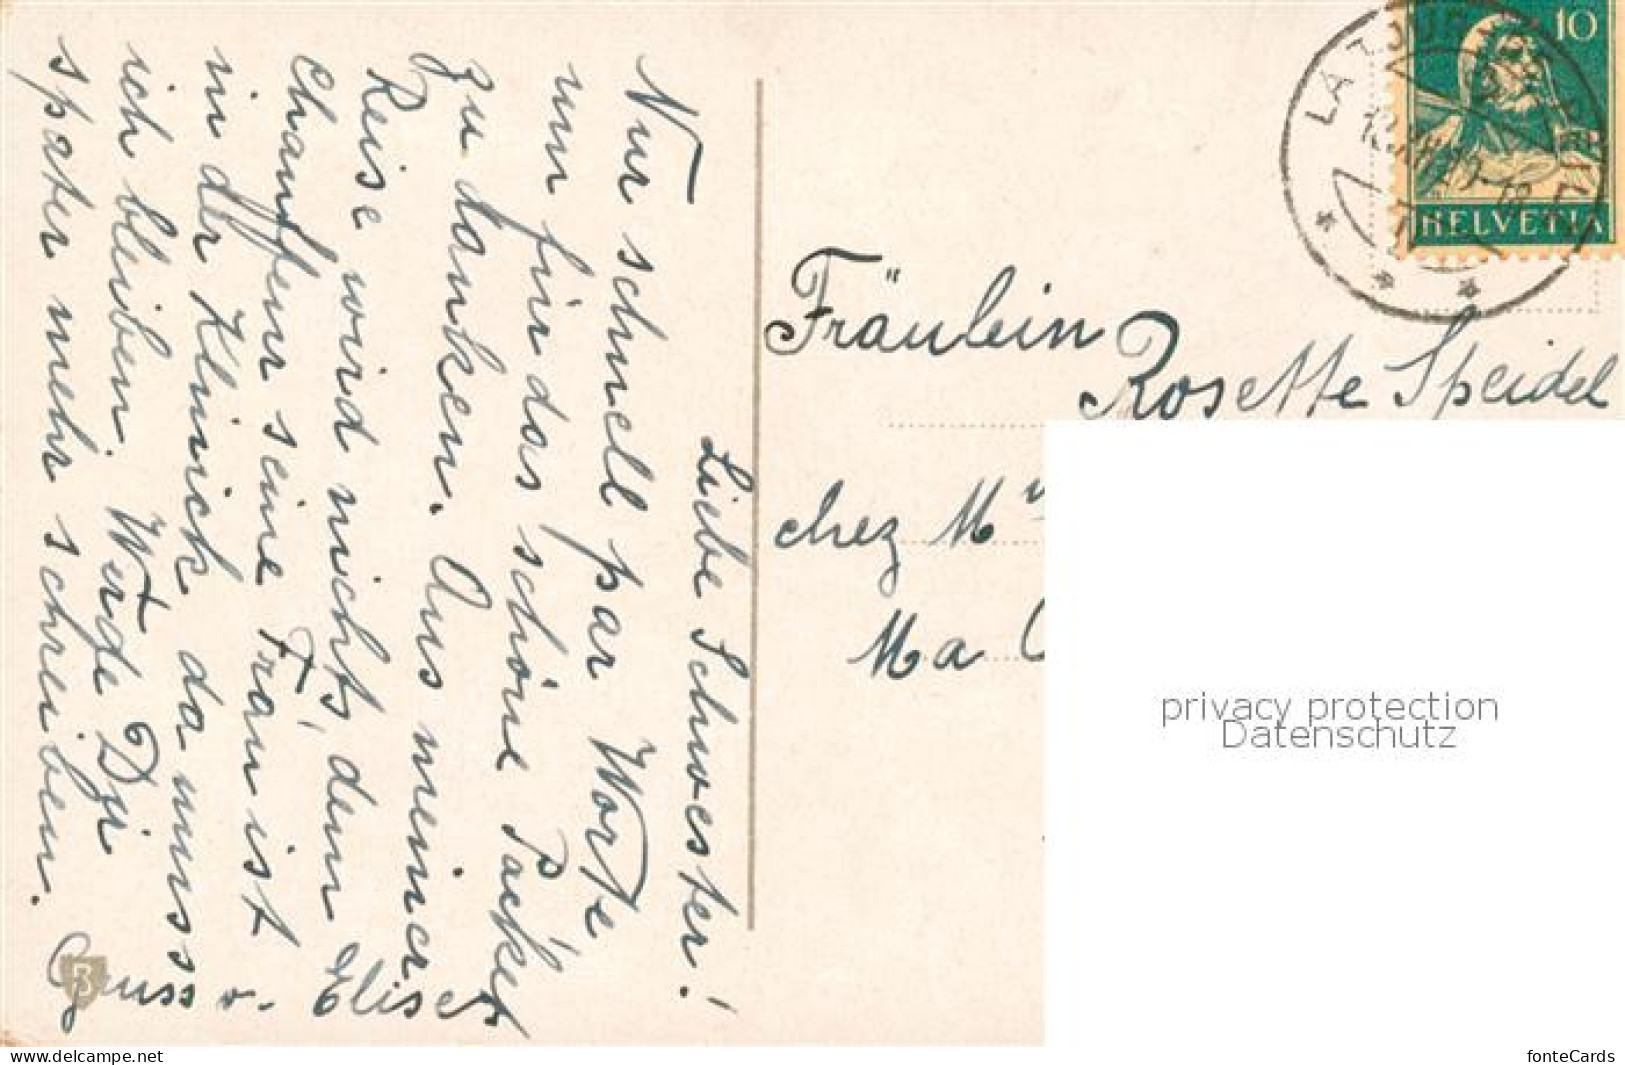 Liebe Schwester!
Nur schnell par Worte
um für das schöne Packet
zu danken. Aus meiner
Reise wird nichts, dem
Chauffeur seine Frau ist
in der Klinick da muss
ich bleiben. Werde Dir
später mehr schreiben.
Gruss v. Eliset
10
HELVETIA
Fräulein
Rosette Speidel
chez
Ma
privacy protection
Datenschutz
www.delcampe.net
fonteCards